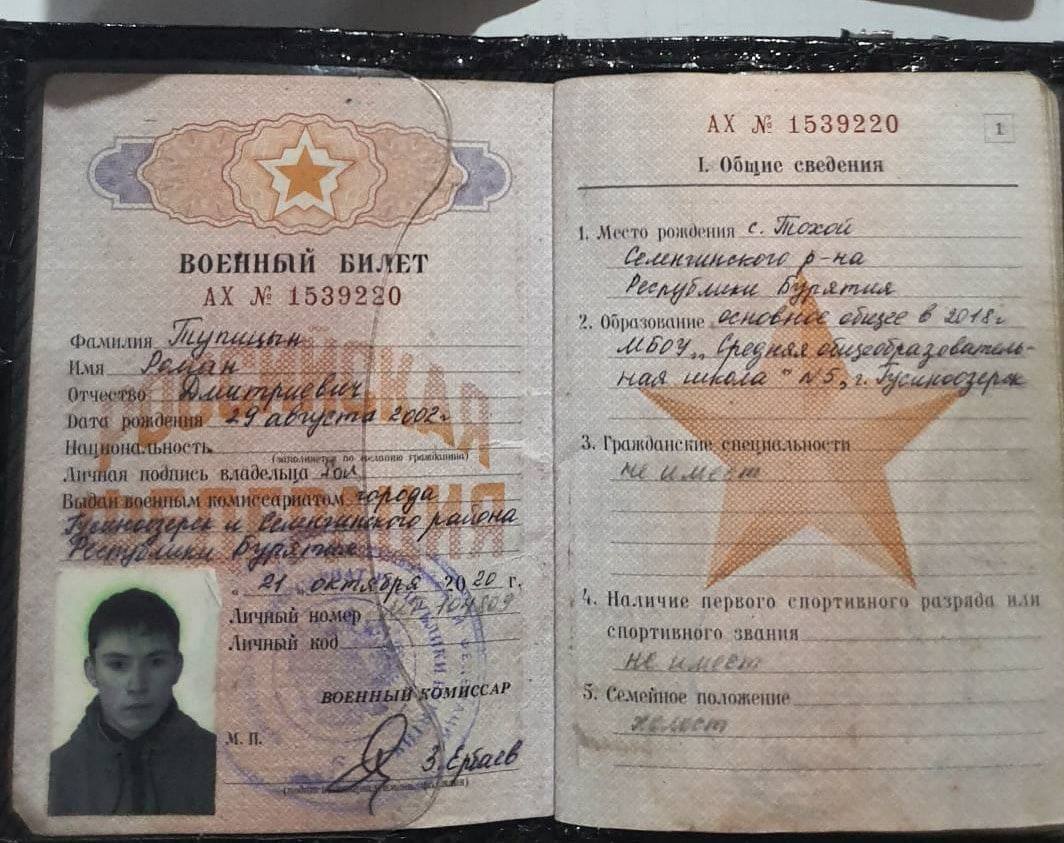 ВОЕННЫЙ БИЛЕТ
АХ № 1539220
Фамилия Тупицын
Имя Роман
Отчество Дмитриевич
Дата рождения 29 августа 2002г
Национальность
(заполняется по желанию гражданина)
Личная подпись владельца
Выдан военным комиссариатом города
Гусиноозерск и Селенгинского района
Республики Бурятия
„21„ октября 2020 г.
Личный номер
Личный код
ВОЕННЫЙ КОМИССАР
М. П.
З. Ербаев
АХ № 1539220
1
I. Общие сведения
1. Место рождения с. Тохой
Селенгинского р-на
Республики Бурятия
2. Образование основное общее в 2018г
МБОУ „Средняя общеобразователь-
ная школа " №5„ г. Гусиноозерск
3. Гражданские специальности
не имеет
4. Наличие первого спортивного разряда или
спортивного звания
не имеет
5. Семейное положение
холост